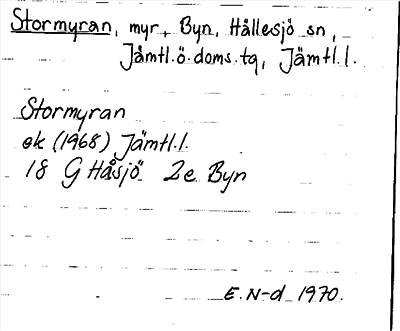 Stormyran, myr, Byn, Hällesjö sn,
Jämtl.ö.doms.tg, Jämtl.l.
Stormyran
ek (1968) Jämtl.l.
18 G Håsjö 2e Byn
E. N-d 1970.